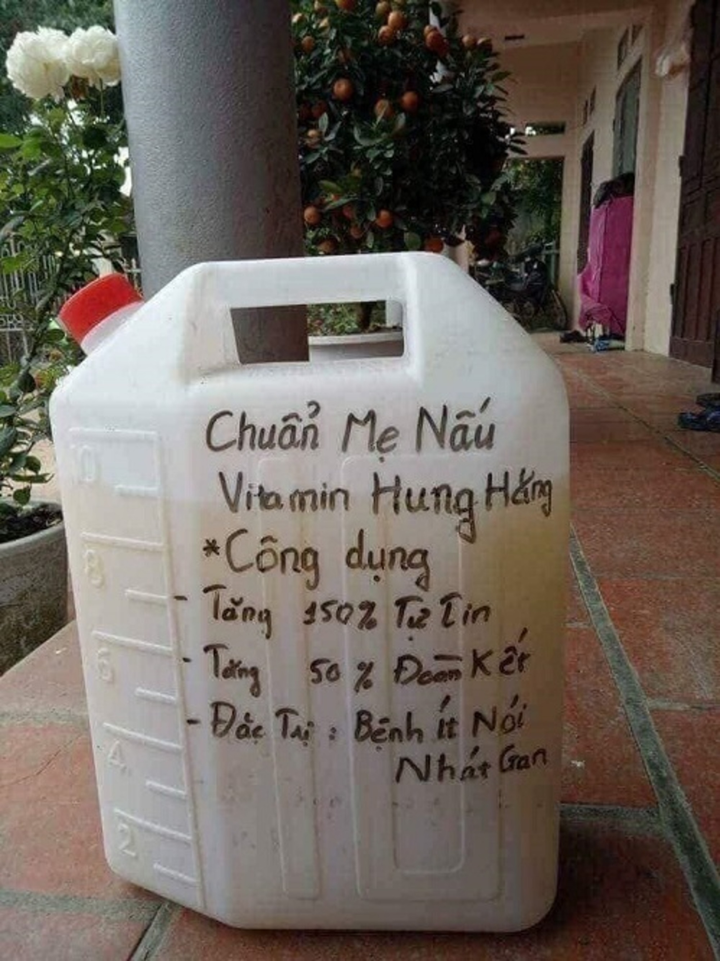 Chuẩn Mẹ Nấu
Vitamin Hung Hăng
*Công dụng
- Tăng 150% Tự Tin
- Tăng 50% Đoàn Kết
- Đặc Trị: Bệnh Ít Nói
Nhát Gan
10
8
6
4
2